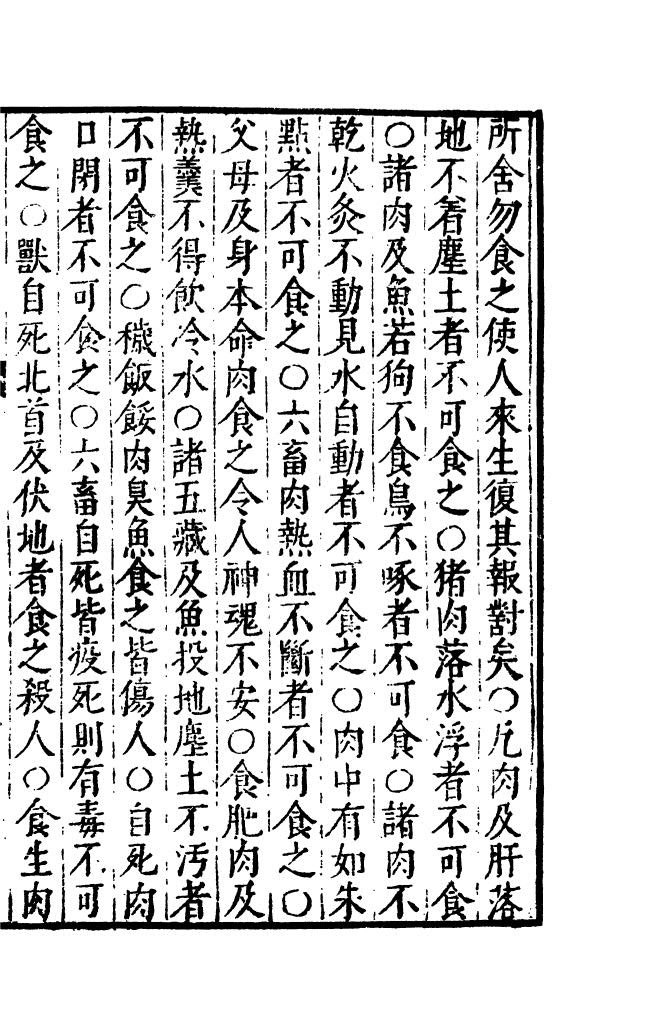 所舍勿食之使人來生復其報對矣○凡肉及肝落
地不着塵土者不可食之○猪肉落水浮者不可食
○諸肉及魚若狗不食鳥不啄者不可食○諸肉不
乾火灸不動見水自動者不可食之○肉中有如朱
點者不可食之○六畜肉熱血不斷者不可食之○
父母及身本命肉食之令人神魂不安○食肥肉及
熱羹不得飲冷水○諸五藏及魚投地塵土不汚者
不可食之○穢飯餒肉臭魚食之皆傷人○自死肉
口閉者不可食之○六畜自死皆疫死則有毒不可
食之○獸自死北首及伏地者食之殺人○食生肉